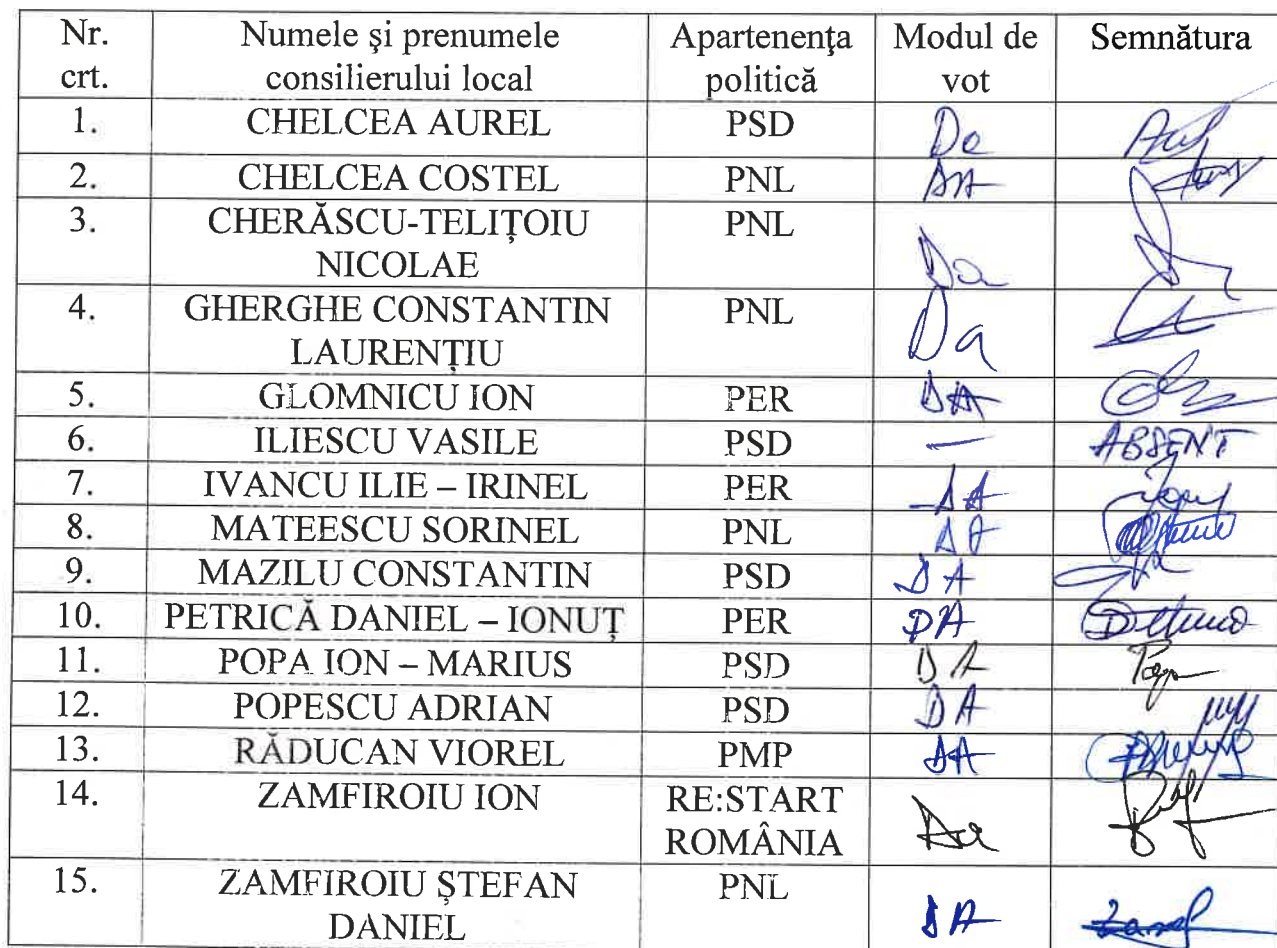 Nr. crt. Numele şi prenumele consilierului local Apartenenţa politică Modul de vot Semnătura
1. CHELCEA AUREL PSD Da
2. CHELCEA COSTEL PNL DA
3. CHERĂSCU-TELIŢOIU NICOLAE PNL Da
4. GHERGHE CONSTANTIN LAURENŢIU PNL Da
5. GLOMNICU ION PER DA
6. ILIESCU VASILE PSD — ABSENT
7. IVANCU ILIE – IRINEL PER DA
8. MATEESCU SORINEL PNL DA
9. MAZILU CONSTANTIN PSD DA
10. PETRICĂ DANIEL – IONUŢ PER DA
11. POPA ION – MARIUS PSD DA
12. POPESCU ADRIAN PSD DA
13. RĂDUCAN VIOREL PMP DA
14. ZAMFIROIU ION RE:START ROMÂNIA Da
15. ZAMFIROIU ŞTEFAN DANIEL PNL DA